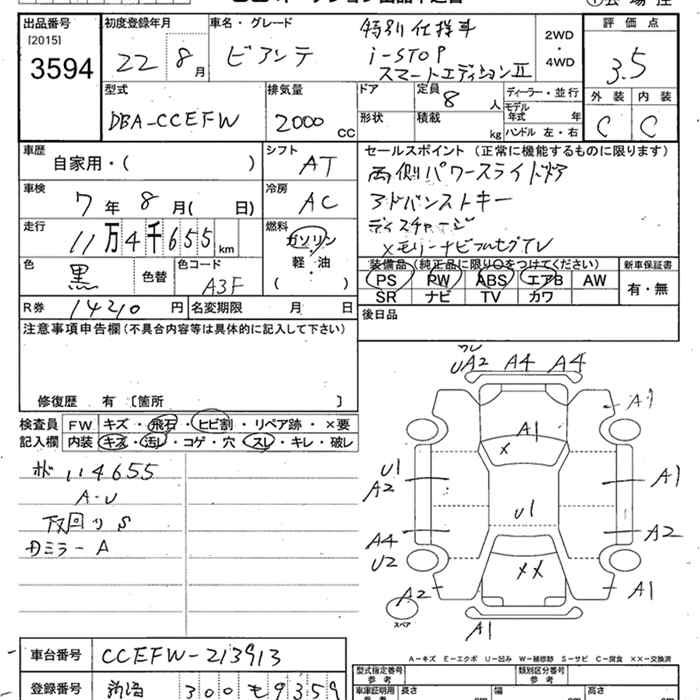 出品番号
[2015]
3594
初度登録年月
22年8月
車名・グレード
ビアンテ
特別仕様車
i-STOP
スマートエディションⅡ
2WD
・
4WD
評価点
3.5
外装 内装
C C
型式
DBA-CCEFW
排気量
2000 CC
ドア
形状
定員 8 人
積載 kg
ディーラー・並行
モデル年式 年
ハンドル 左・右
車歴
自家用・( )
シフト
AT
車検
7年8月( 日)
冷房
AC
走行
11万4千655km
燃料
ガソリン
・
軽・油
( )
色
黒
色替
色コード
A3F
R券 14210円
名変期限 月 日
セールスポイント(正常に機能するものに限ります)
両側パワースライドドア
アドバンストキー
ディスチャージ
メモリーナビフルセグTV
装備品(純正品に限り○をつけてください)
PS PW ABS エアB AW
SR ナビ TV カワ
新車保証書
有・無
後日品
注意事項申告欄(不具合内容等は具体的に記入して下さい)
修復歴 有〔箇所 〕
検査員
記入欄
FW キズ・飛石・ヒビ割・リペア跡・×要
内装 キズ・汚レ・コゲ・穴・スレ・キレ・破レ
114655
A-U
下回りS
ミラーA
UA2 A4 A4
A1
A1
×
U1
A2
A1
U1
A4
U2
A2
××
A2
A1
スペア
A1
A-キズ E-エクボ U-凹み W-補修跡 S-サビ C-腐食 ××-交換済
車台番号
CCEFW-213913
登録番号
300 も 9359
型式指定番号
参考
類別区分番号
参考
車庫証明用
長さ
幅
高さ